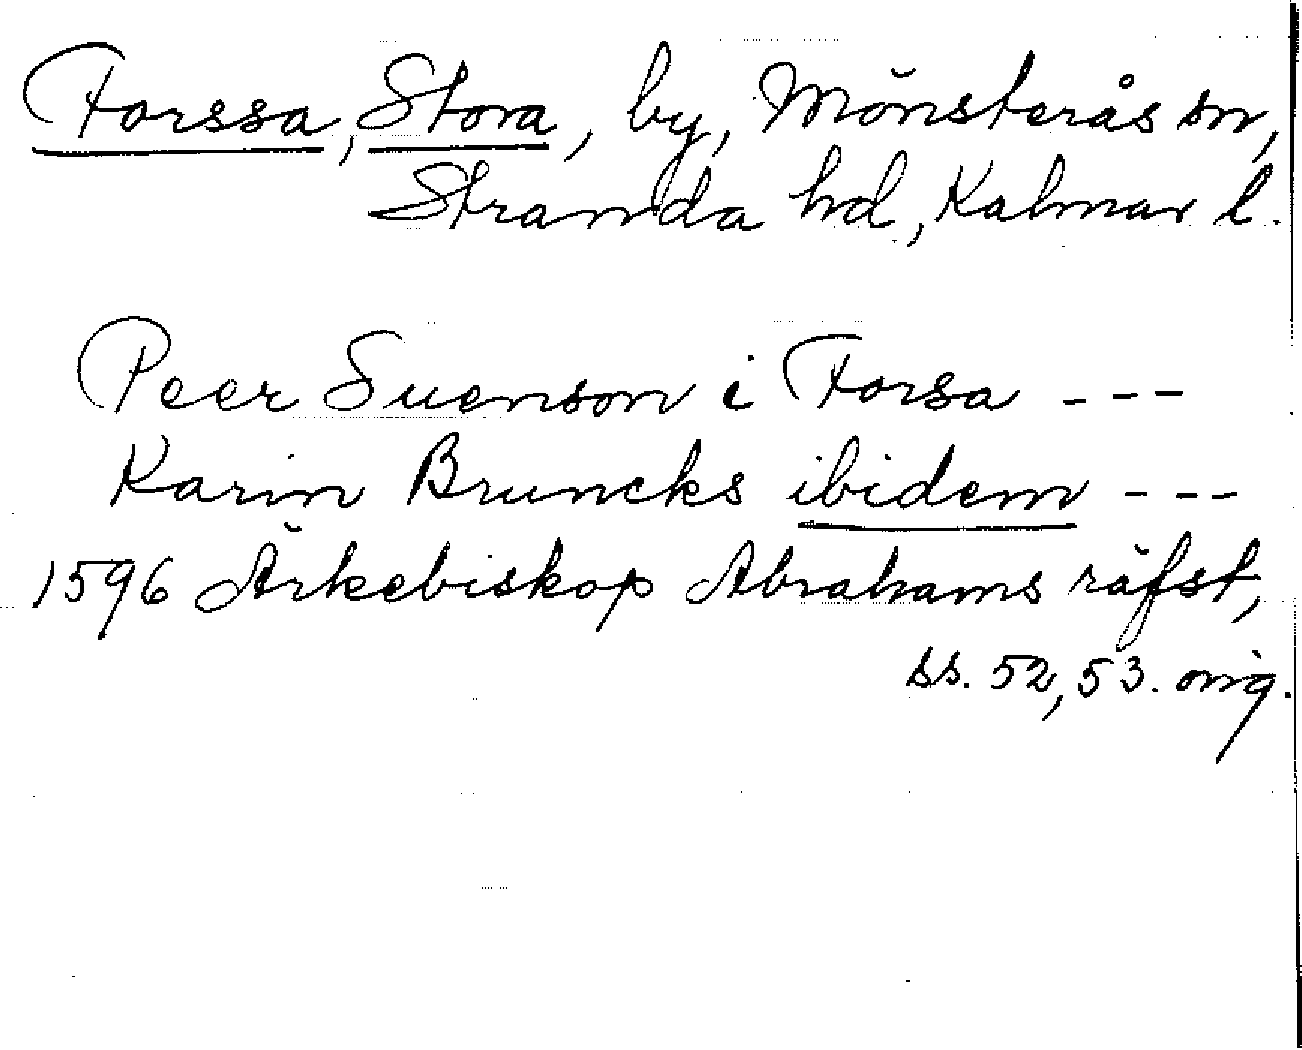 Forssa, Stora, by, Mönsterås sn,
Stranda hd, Kalmar l.
Peer Suenson i Forsa ---
Karin Bruncks ibidem ---
1596 Ärkebiskop Abrahams räfst,
ss. 52, 53. orig.